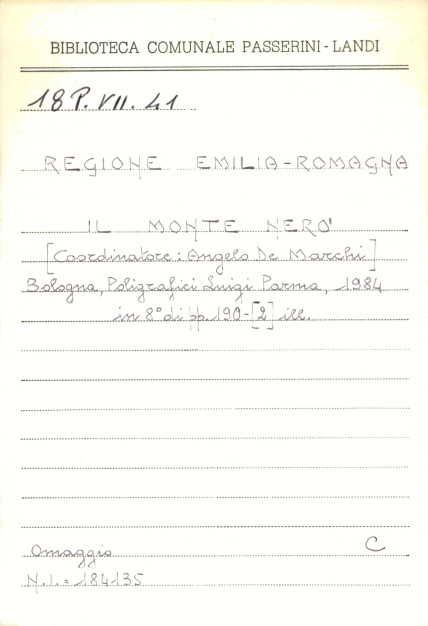 BIBLIOTECA COMUNALE PASSERINI-LANDI
18 P. VII. 41
REGIONE EMILIA-ROMAGNA
IL MONTE NERO'
[Coordinatore: Angelo De Marchi]
Bologna, Poligrafici Luigi Parma, 1984
in 8° di pp. 190-[2] ill.
Omaggio C
N.I.= 184135